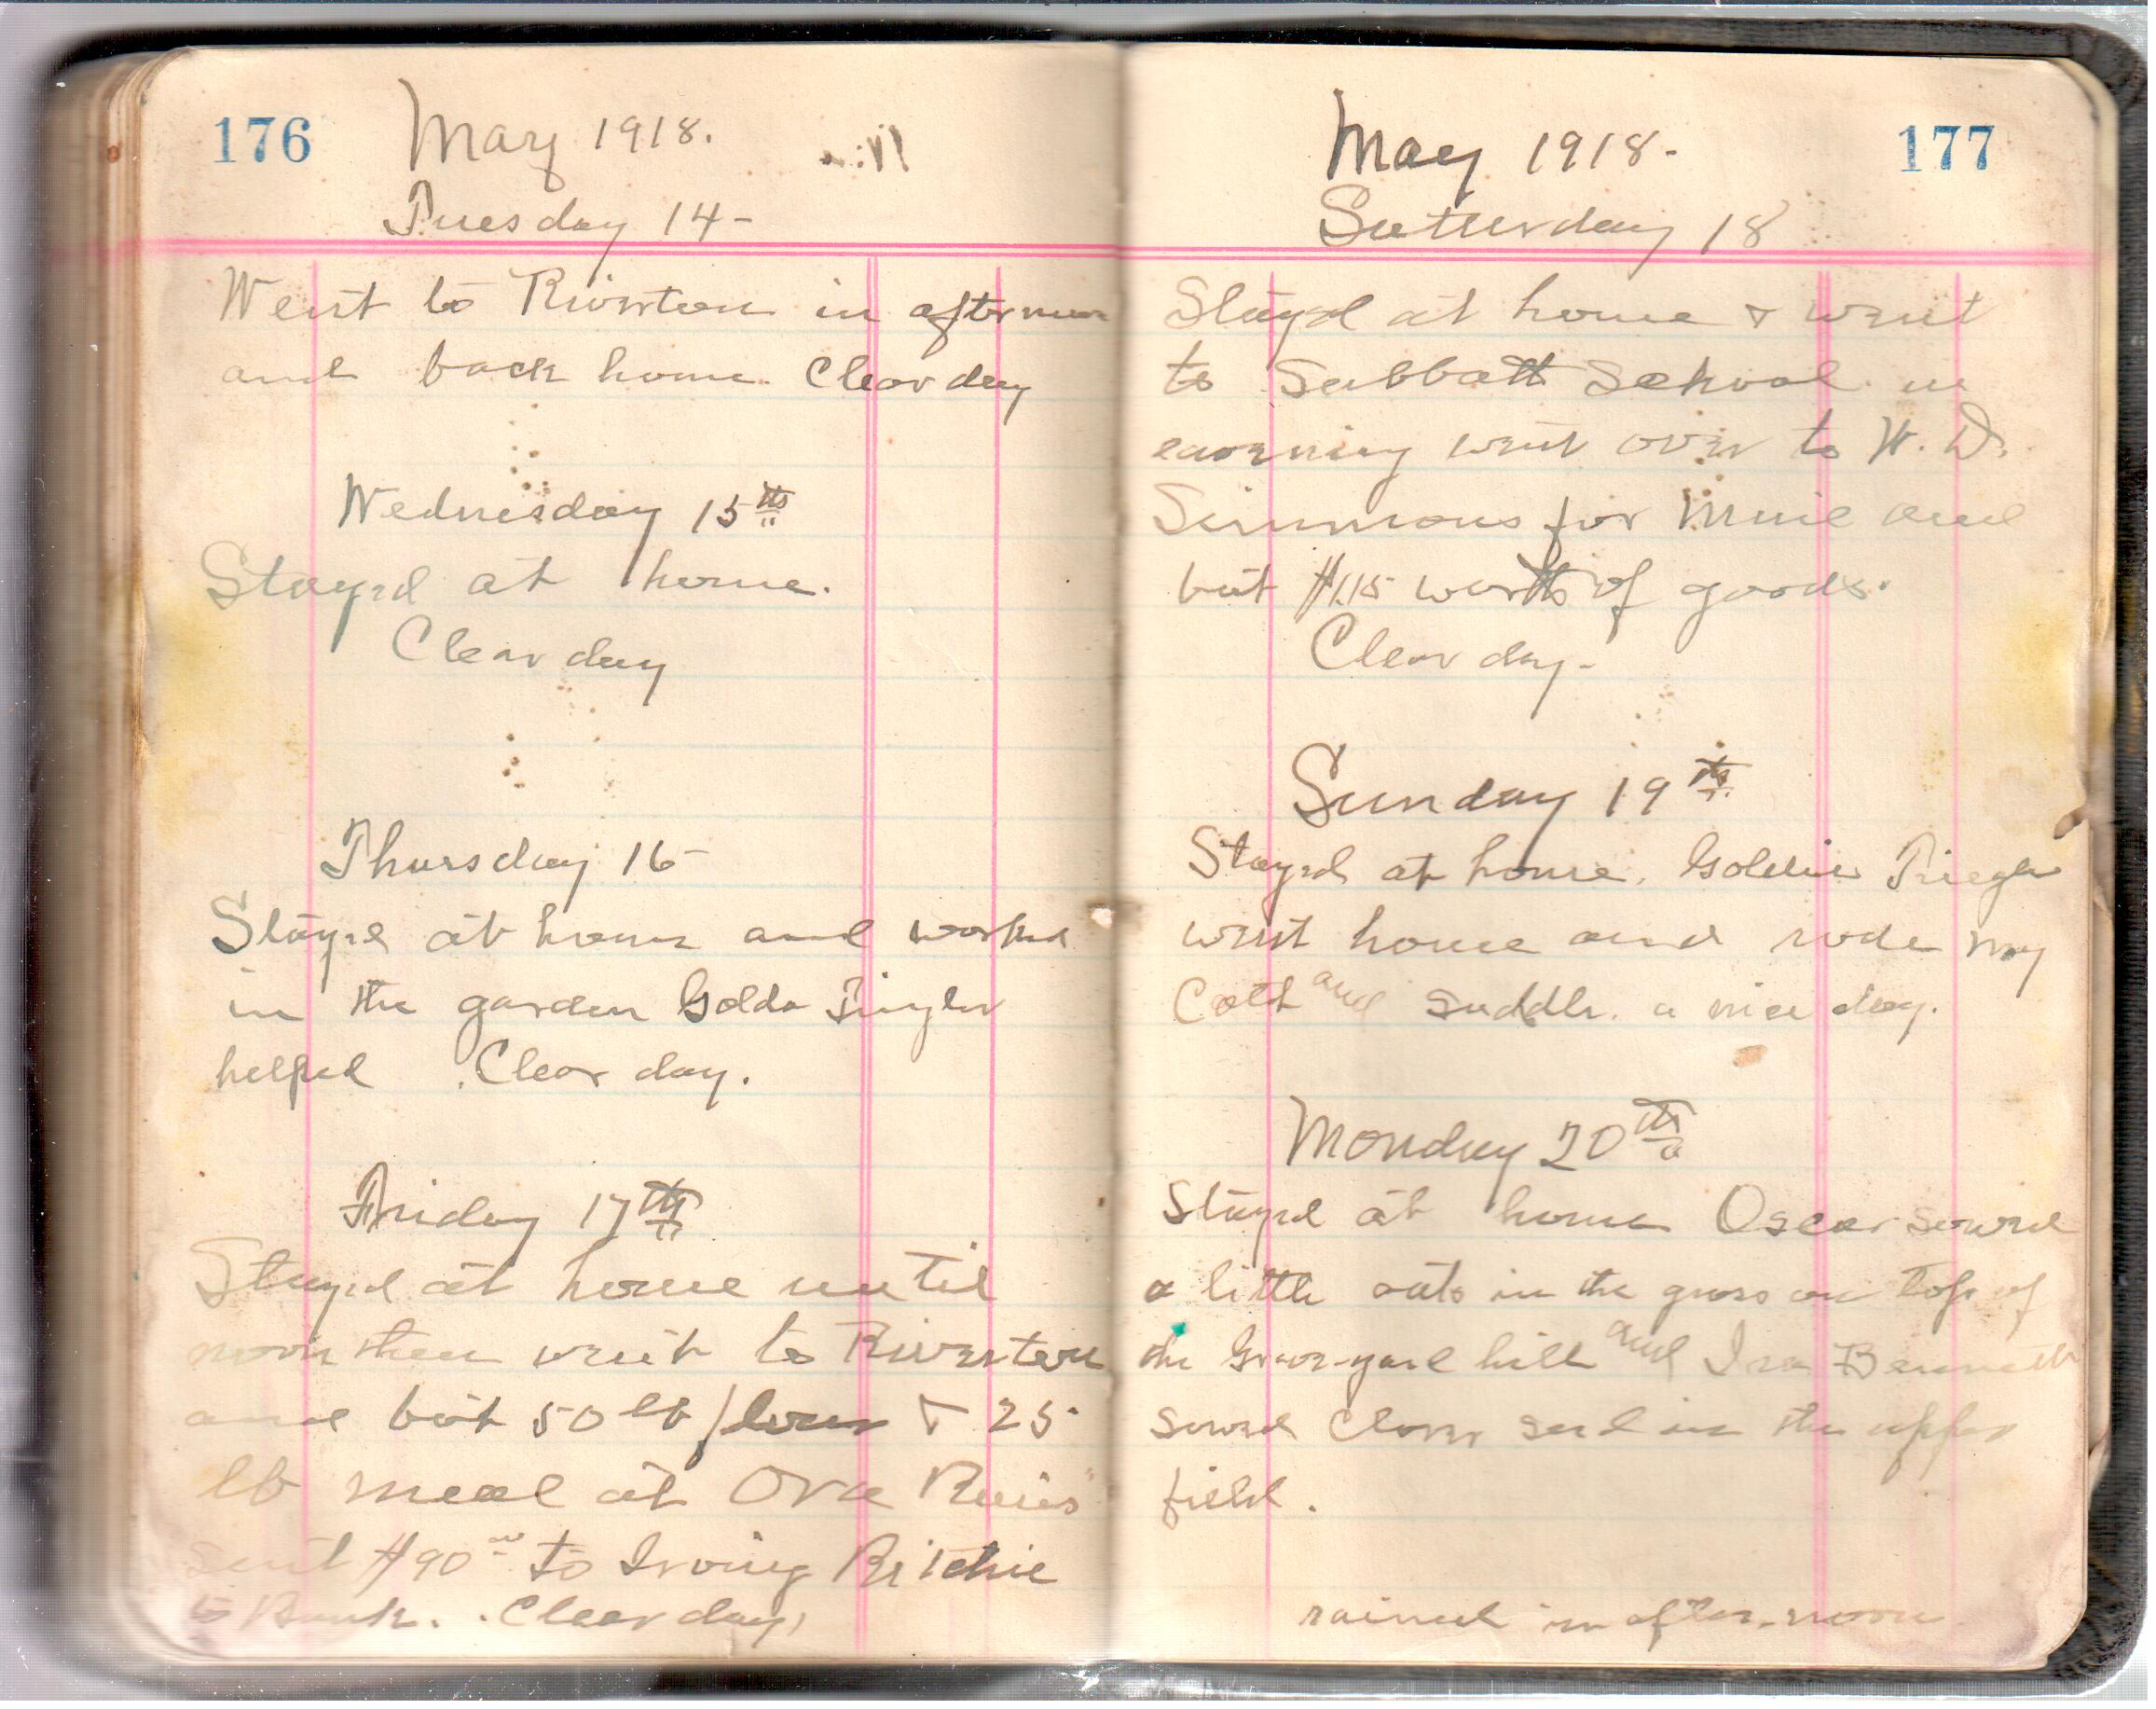 176
May 1918.
Tuesday 14-
Went to Riverton in afternoon
and back home. Clear day
Wednesday 15th
Stayed at home.
Clear day
Thursday 16-
Stayed at home and worked
in the garden Golda
helped. Clear day.
Friday 17th
Stayed at home until
noon then went to Riverton
and bot 50 lb flour & 25
lb meal at Orra
sent $90.00 to Irving Ritchie
to Bank. Clear day,
May 1918.
177
Satturday 18
Stayed at home & went
to Sabbath School in
evening went over to W. D.
Simmons for and
bot $1.15 worth of goods.
Clear day-
Sunday 19th
Stayed at home. Goldie
went home and rode my
Colt and saddle. a nice day.
Monday 20th
Stayed at home Oscar sowed
a little oats in the grass on top of
the Grave-yard hill and Ira Bennett
sowed Clover seed in the upper
field.
rained in after-noon